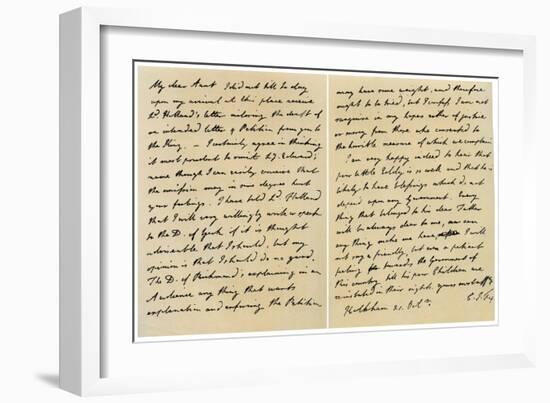 My dear Aunt I did not till to day
upon my arrival at this place receive
Ld. Holland's letter inclosing the draft of
an intended letter & Petition from you to
the King. — I certainly agree in thinking
it most prudent to omit Ld. Edward's
name though I can easily conceive that
the omission may in some degree hurt
your feelings. I have told Ld. Holland
that I will very willingly write or speak
to the D. of York if it is thought
adviseable that I should, but my
opinion is that I should do no good.
The D. of Richmond's explaining in an
Audience any thing that wants
explanation and enforcing the Petition
may have some weight, and therefore
ought to be tried, but I confess I am not
sanguine in my hopes either of justice
or mercy from those who consented to
the horrible measure of which we complain
I am very happy indeed to hear that
poor little Eddy is so well and that he is
likely to have blessings which do not
depend upon any Government. Every
thing that belonged to his dear Father
will be always dear to me, nor can
any thing make me have, I will
not say a friendly, but even a patient
feeling towards the Government of
this country till his poor Children are
reinstated in their rights. yours most aff:ly
Holkham 21. Oct.
C. J. Fox